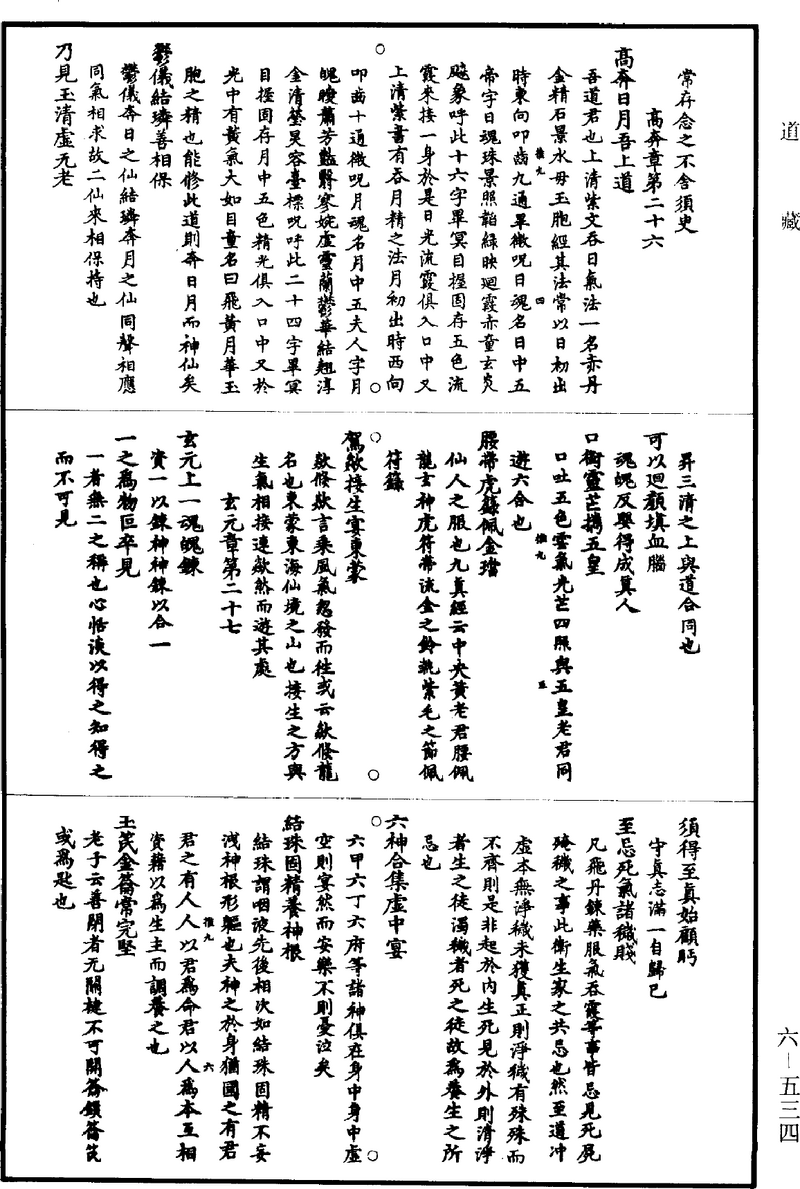 道藏
常存念之不舍須史
高奔章第二十六
高奔日月吾上道
吾道君也上清紫文吞日氣法一名赤丹
金精石景水母玉胞經其法常以日初出
時東向叩齒九通畢微呪日魂名日中五
帝字日魂珠景照韜綠映迴霞赤童玄炎
飈象呼此十六字畢冥目握固存五色流
霞來接一身於是日光流霞俱入口中又
上清紫書有吞月精之法月初出時西向
叩齒十通微呪月魂名月中五夫人字月
魄曖蕭芳豔翳寥婉虛靈蘭鬱華結翹淳
金清瑩炅容臺標呪呼此二十四字畢冥
目握固存月中五色精光俱入口中又於
光中有黃氣大如目童名曰飛黃月華玉
胞之精也能修此道則奔日月而神仙矣
鬱儀結璘善相保
鬱儀奔日之仙結璘奔月之仙同聲相應
同氣相求故二仙來相保持也
乃見玉清虛无老
推九
四
昇三清之上與道合同也
可以迴顏填血腦
魂魄反嬰得成真人
口銜靈芒攜五皇
口吐五色雲氣光芒四照與五皇老君同
遊六合也
腰帶虎籙佩金璫
仙人之服也九真經云中央黃老君腰佩
龍玄神虎符帶流金之鈴執紫毛之節佩
符籙
駕欻接生宴東蒙
欻倏欻言乘風氣忽發而往或云欻倏龍
名也東蒙東海仙境之山也接生之方與
生氣相接連欻然而遊其處
玄元章第二十七
玄元上一魂魄鍊
資一以鍊神神鍊以合一
一之為物叵卒見
一者無二之稱也心恬淡以得之知得之
而不可見
推九
五
須得至真始顧眄
守真志滿一自歸己
至忌死氣諸穢賤
凡飛丹鍊藥服氣吞霞等事皆忌見死屍
殗穢之事此衛生家之共忌也然至道冲
虛本無淨穢未獲真正則淨穢有殊殊而
不齊則是非起於內生死見於外則清淨
者生之徒濁穢者死之徒故為養生之所
忌也
六神合集虛中宴
六甲六丁六府等諸神俱在身中身中虛
空則宴然而安樂不則憂泣矣
結珠固精養神根
結珠謂咽液先後相次如結珠固精不妄
洩神根形軀也夫神之於身猶國之有君
君之有人人以君為命君以人為本互相
資藉以為生主而調養之也
玉笢金籥常完堅
老子云善閉者无關楗不可開籥鎖籥笢
或為匙也
推九
六
六－五三四